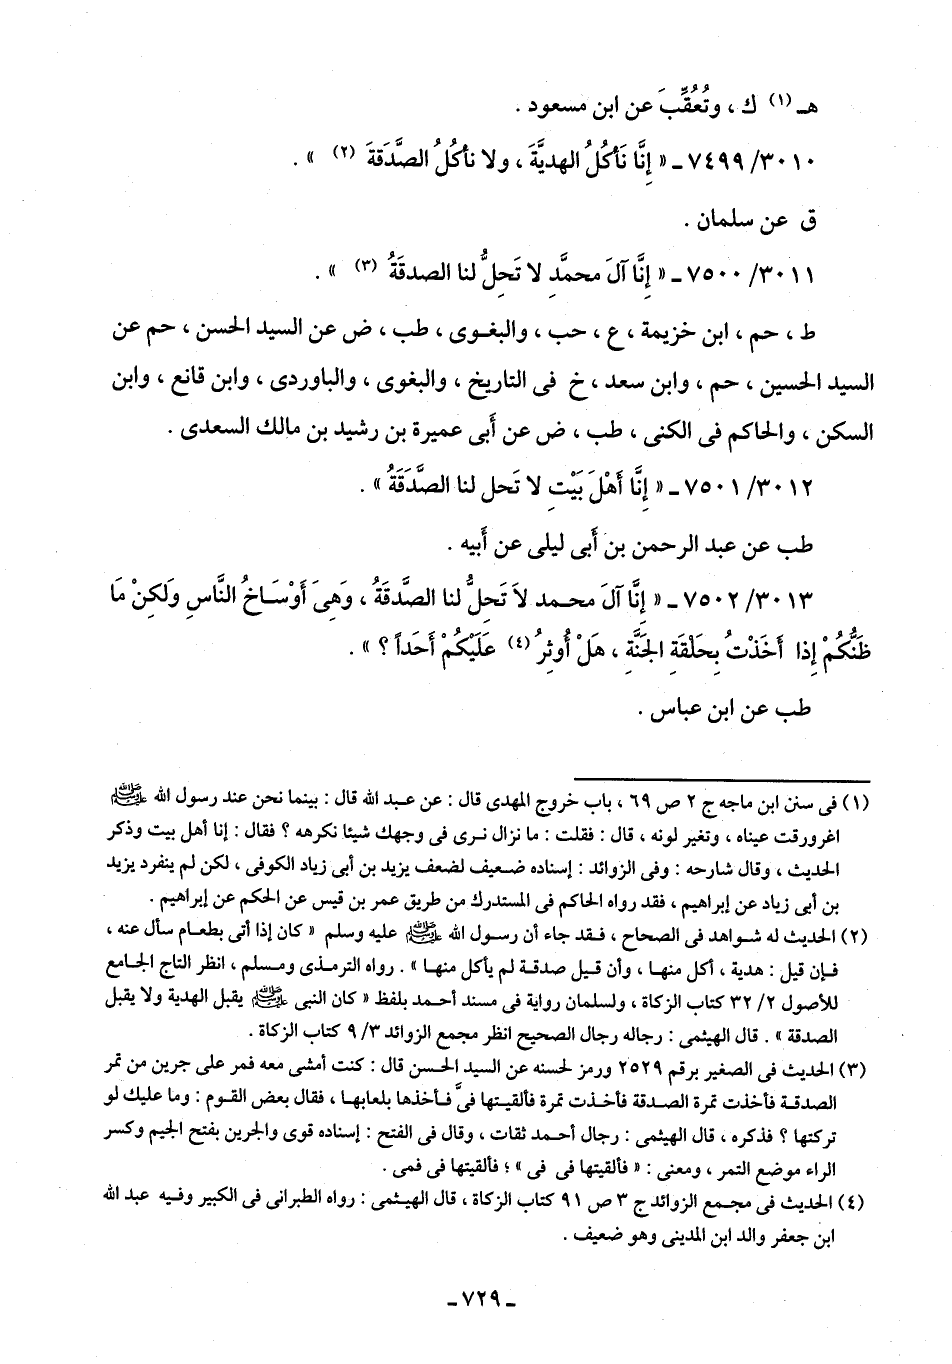 هـ (١) ك ، وتُعُقِّبَ عن ابن مسعود .
٣٠١٠/ ٧٤٩٩ ـ « إِنَّا نَأكُلُ الهديَّةَ ، ولا نأكُلُ الصَّدَقةَ (٢) » .
ق عن سلمان .
٣٠١١/ ٧٥٠٠ ـ « إِنَّا آلَ محمَّدٍ لا تَحِلُّ لنا الصدقَةُ (٣) » .
ط ، حم ، ابن خزيمة ، ع ، حب ، والبغـوى ، طب ، ض عن السيد الحسن ، حم عن
السيد الحسين ، حم ، وابن سعد ، خ فى التاريخ ، والبغوى ، والباوردى ، وابن قانع ، وابن
السكن ، والحاكم فى الكنى ، طب ، ض عن أَبى عميرة بن رشيد بن مالك السعدى .
٣٠١٢/ ٧٥٠١ ـ « إِنَّا أَهْلَ بَيْتٍ لا تَحل لنا الصَّدَقَةُ » .
طب عن عبد الرحمن بن أَبى ليلى عن أَبيه .
٣٠١٣/ ٧٥٠٢ ـ « إِنَّا آلَ محـمد لاَ تَحِلُّ لنا الصَّدقَةُ ، وَهِىَ أَوْسَـاخُ النَّاسِ وَلَكِنْ مَا
ظَنُّكُمْ إِذا أَخَذْتُ بِحَلْقَةِ الجَنَّةِ ، هَلْ أُوثِرُ (٤) عَلَيْكُمْ أَحَداً ؟ » .
طب عن ابن عباس .
(١) فى سنن ابن ماجه ج ٢ ص ٦٩ ، باب خروج المهدى قال : عن عبد الله قال : بينما نحن عند رسول الله ﷺ
اغرورقت عيناه ، وتغير لونه ، قال : فقلت : ما نزال نرى فى وجهك شيئا نكرهه ؟ فقال : إنا أهل بيت وذكر
الحديث ، وقال شارحه : وفى الزوائد : إسناده ضعيف لضعف يزيد بن أبى زياد الكوفى ، لكن لم ينفرد يزيد
بن أبى زياد عن إبراهيم ، فقد رواه الحاكم فى المستدرك من طريق عمر بن قيس عن الحكم عن إبراهيم .
(٢) الحديث له شواهد فى الصحاح ، فقد جاء أن رسول الله ﷺ عليه وسلم « كان إذا أتى بطعام سأل عنه ،
فإن قيل : هدية ، أكل منها ، وأن قيل صدقة لم يأكل منها » . رواه الترمذى ومسلم ، انظر التاج الجامع
للأصول ٢/ ٣٢ كتاب الزكاة ، ولسلمان رواية فى مسند أحمد بلفظ « كان النبى ﷺ يقبل الهدية ولا يقبل
الصدقة » . قال الهيثمى : رجاله رجال الصحيح انظر مجمع الزوائد ٣/ ٩ كتاب الزكاة .
(٣) الحديث فى الصغير برقم ٢٥٢٩ ورمز لحسنه عن السيد الحسن قال : كنت أمشى معه فمر على جرين من تمر
الصدقة فأخذت تمرة الصدقة فأخذت تمرة فألقيتها فىَّ فأخذها بلعابها ، فقال بعض القوم : وما عليك لو
تركتها ؟ فذكره ، قال الهيثمى : رجال أحمد ثقات ، وقال فى الفتح : إسناده قوى والجرين بفتح الجيم وكسر
الراء موضع التمر ، ومعنى : « فألقيتها فى فى » ؛ فألقيتها فى فمى .
(٤) الحديث فى مجمع الزوائد ج ٣ ص ٩١ كتاب الزكاة ، قال الهيثمى : رواه الطبرانى فى الكبير وفيه عبد الله
ابن جعفر والد ابن المدينى وهو ضعيف .
ـ ٧٢٩ ـ